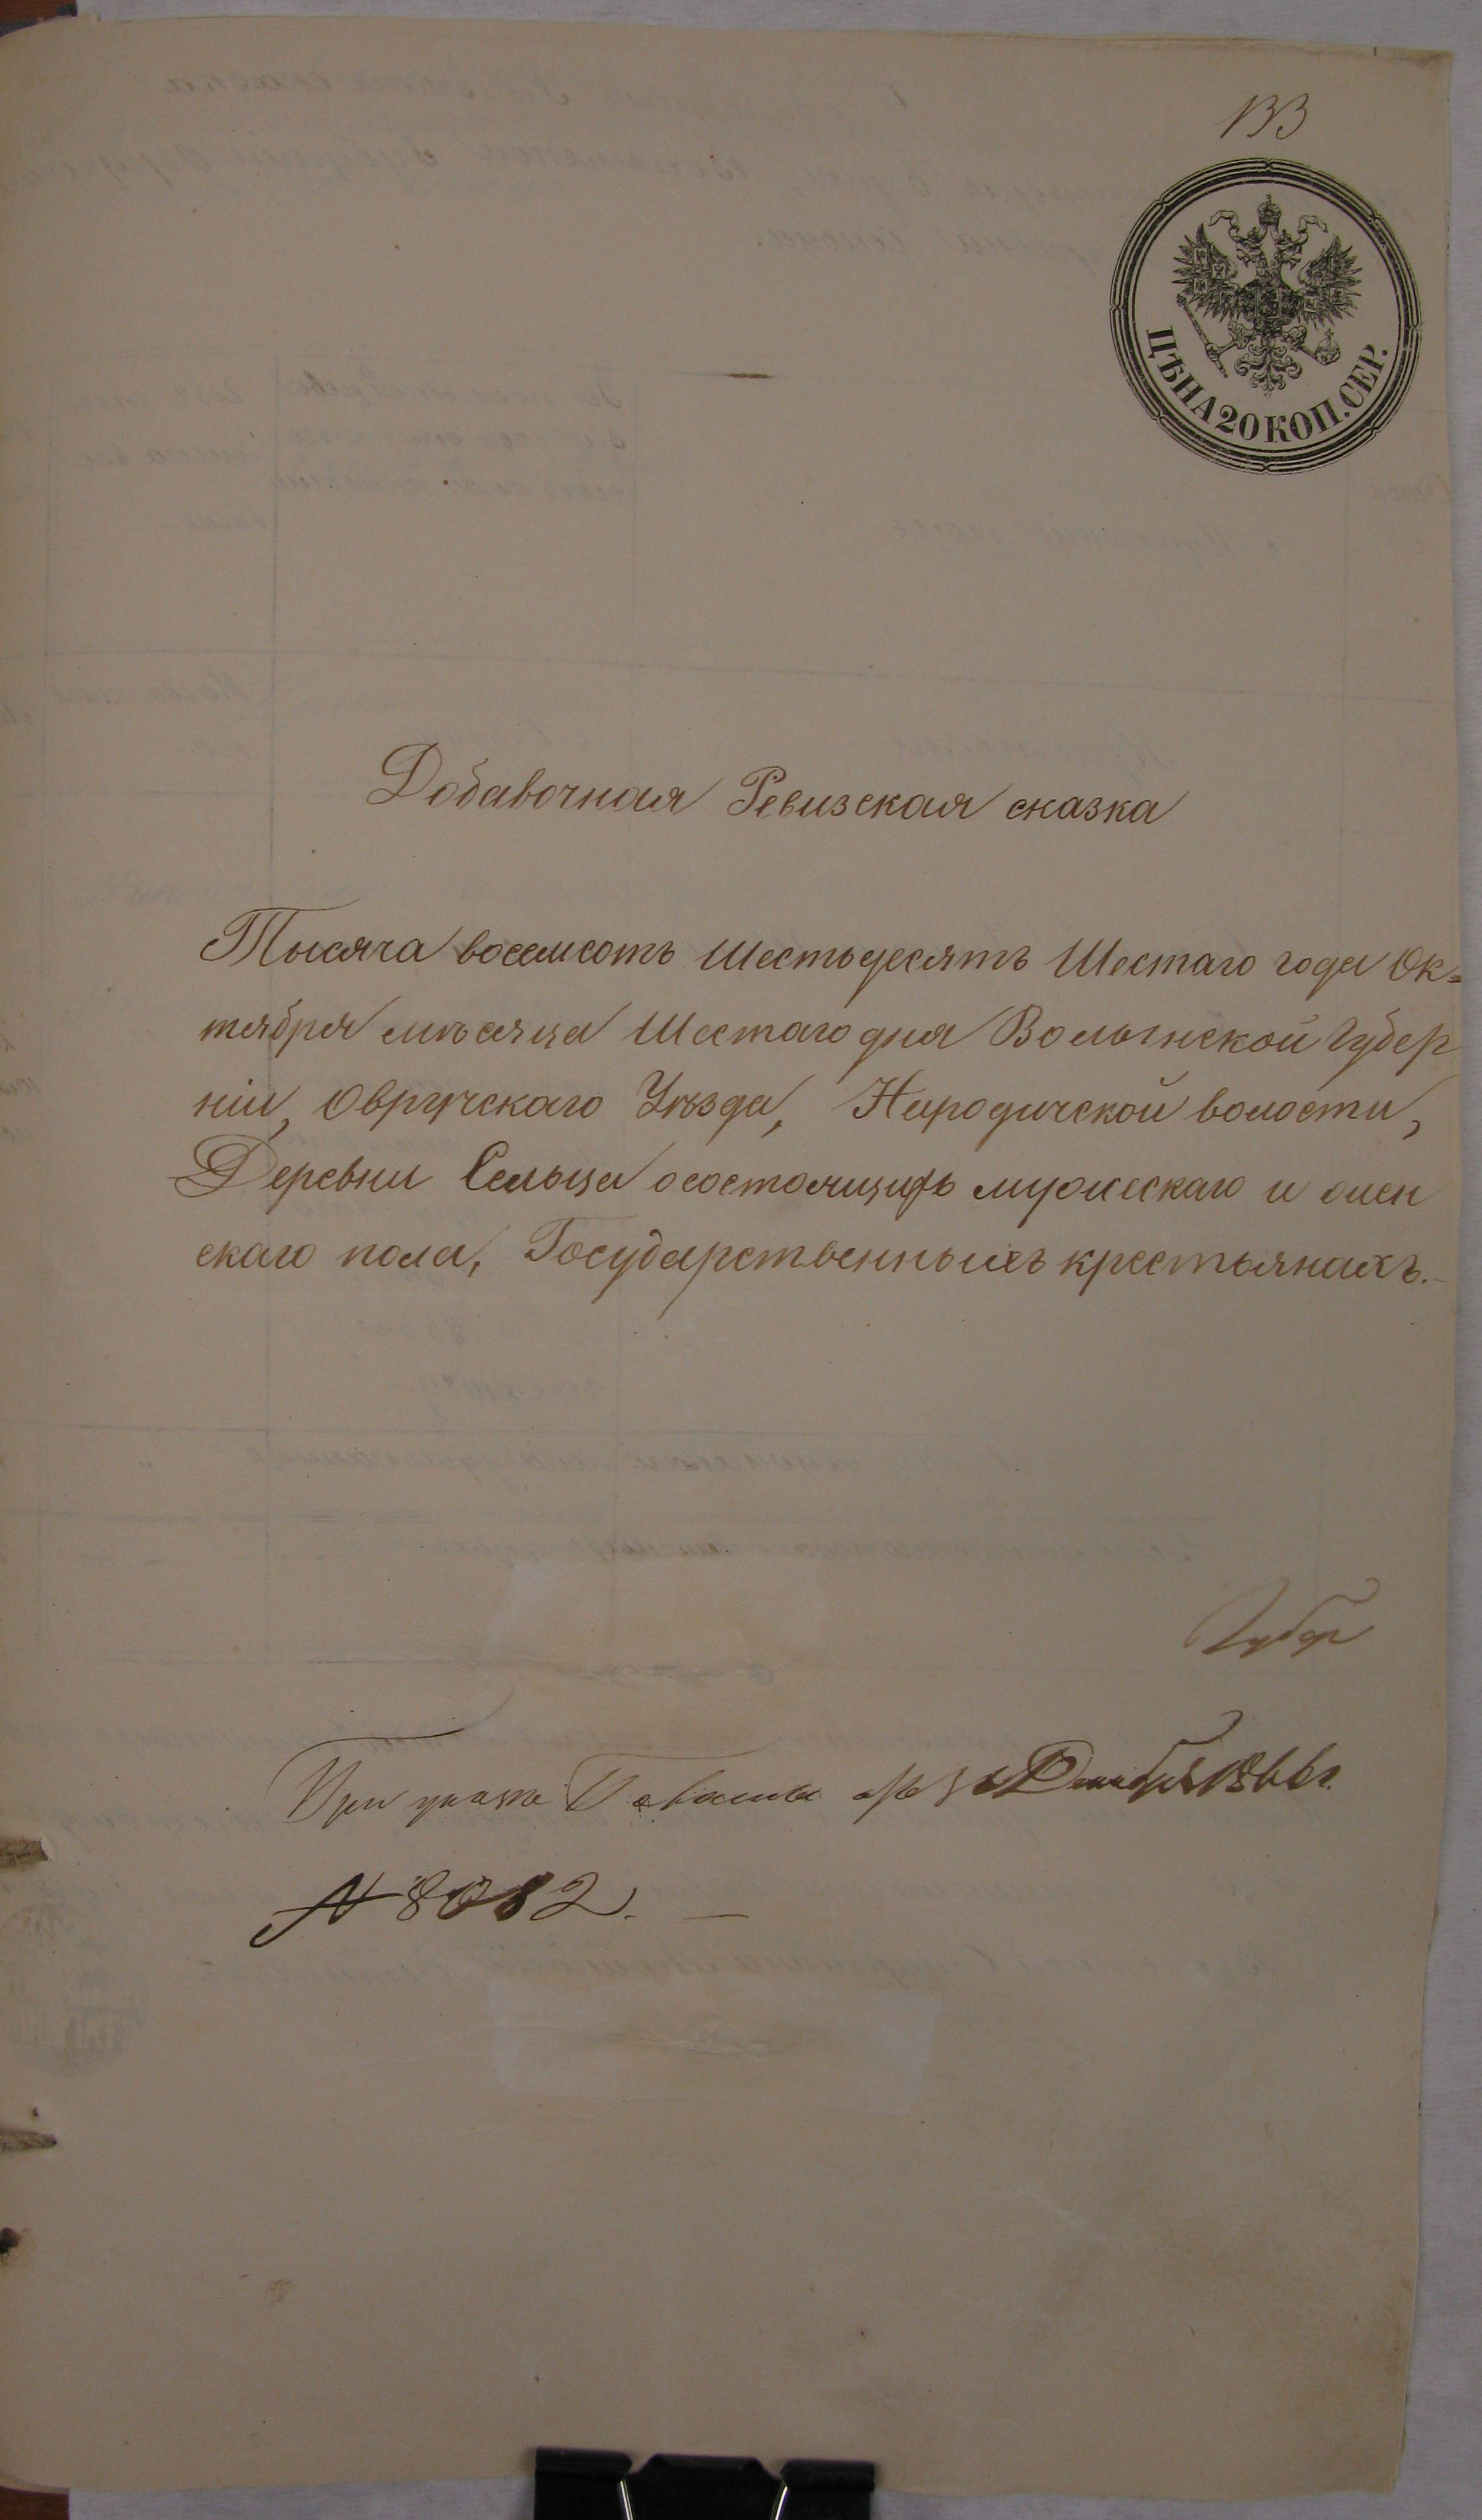 133
ЦѢНА 20 КОП. СЕР.
Добавочная Ревизская сказка
Тысяча восемсотъ Шестьдесятъ Шестаго года Ок=
тября мѣсяца Шестаго дня Волынской Губер
ніи, Овручскаго Уѣзда, Народичской волости,
Деревни Сельца о состоящихъ мужескаго и жен
скаго пола, Государственныхъ крестьянахъ.
При указе Палаты отъ Декабря 1866 г.
№ 8082.